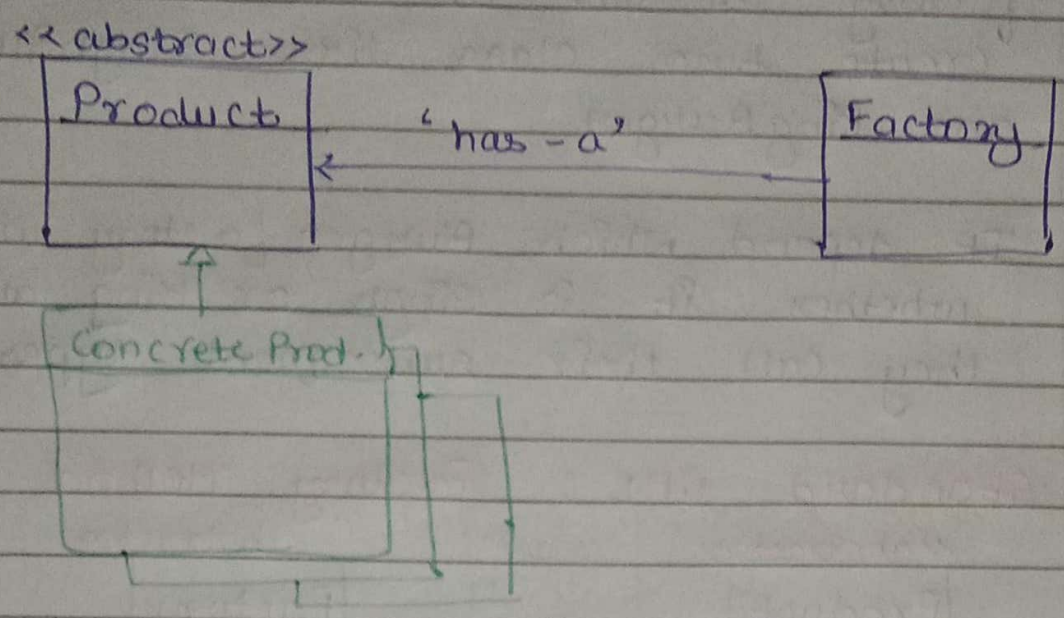 <<abstract>>
Product
'has-a'
Factory
Concrete Prod.